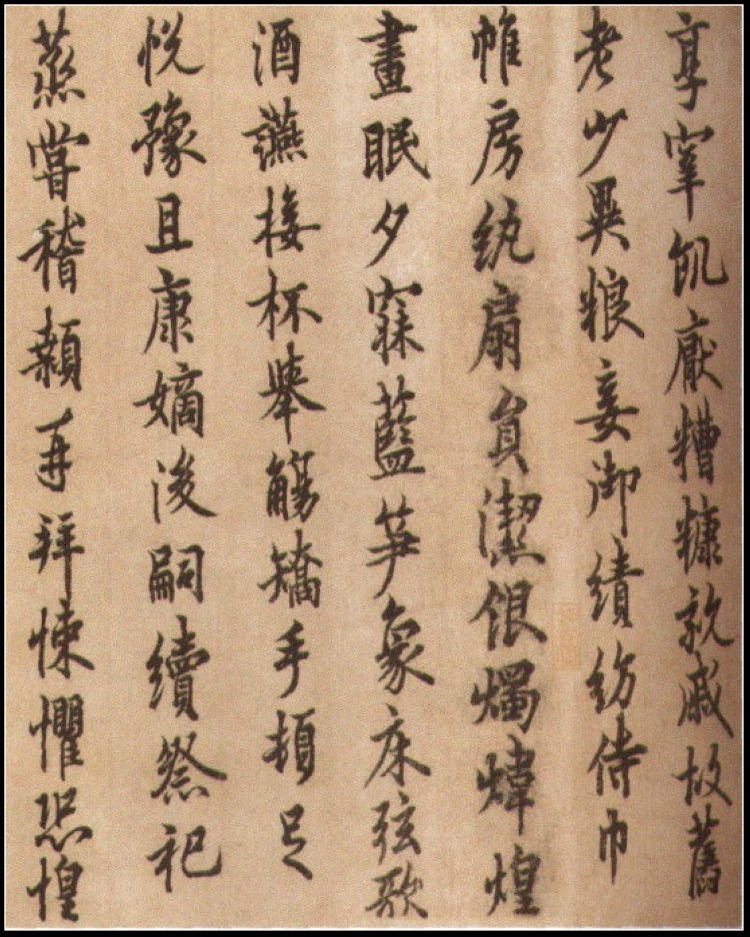 享宰飢厭糟糠親戚故舊
老少異粮妾御績紡侍巾
帷房紈扇員潔銀燭煒煌
晝眠夕寐藍笋象床弦歌
酒讌接杯舉觴矯手頓足
悅豫且康嫡後嗣續祭祀
蒸嘗稽顙再拜悚懼恐惶